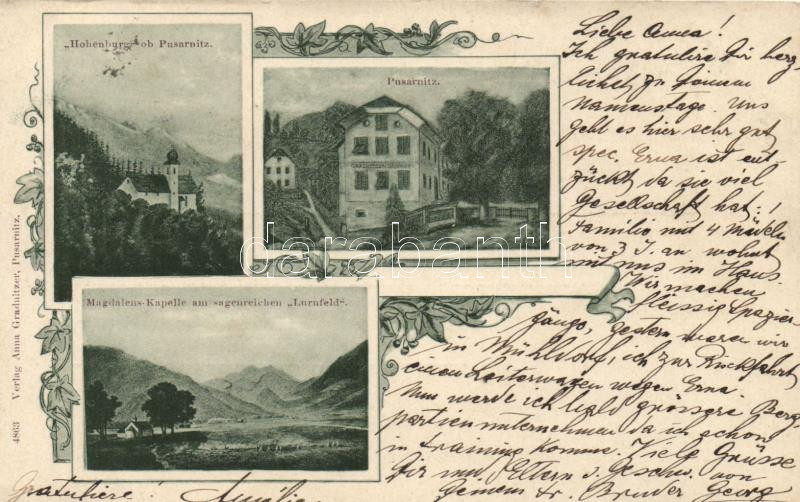 „Hohenburg" ob Pusarnitz.
Pusarnitz.
Magdalens-Kapelle am sagenreichen „Lurnfeld".
4863 Verlag Anna Gradnitzer, Pusarnitz.
darabanth
Liebe Anna!
Ich gratulire dir herz
lichst zu Deinem
Namenstage. Uns
geht es hier sehr gut
spec. Erna ist ent-
zückt da sie viel
Gesellschaft hat!
Familie mit 4 Mädeln
von 3 J. an wohnt
mit uns im Haus.
Wir machen
fleissig Spazier
gänge, gestern waren wir
in Mühldorf, ich zur Rückfahrt
einen Leiterwagen wegen Erna.
Nun werde ich bald grössere Berg
partien unternehmen da ich schon
in training komme. Viele Grüsse
dir und Eltern u. Geschw. von
Deinem Bruder Georg
Gratuliere! Amélie